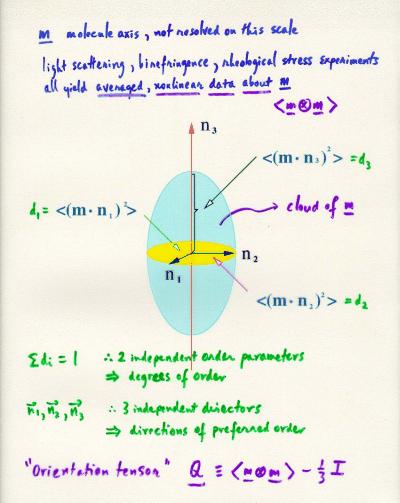 m molecule axis, not resolved on this scale
light scattering, birefringence, rheological stress experiments
all yield averaged, nonlinear data about m
<m⊗m>
n₃
<(m·n₃)²> = d₃
d₁ = <(m·n₁)²>
cloud of m
n₂
n₁
<(m·n₂)²> = d₂
Σdi = 1 ∴ 2 independent order parameters
⇒ degrees of order
n⃗₁, n⃗₂, n⃗₃ ∴ 3 independent directors
⇒ directions of preferred order
"Orientation tensor" Q ≡ <m⊗m> - 1/3 I